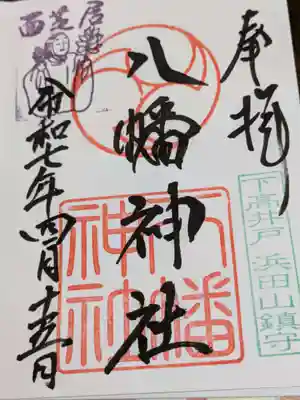 奉拝
下高井戸 浜田山鎮守
八幡神社
八幡神社
令和七年四月十五日